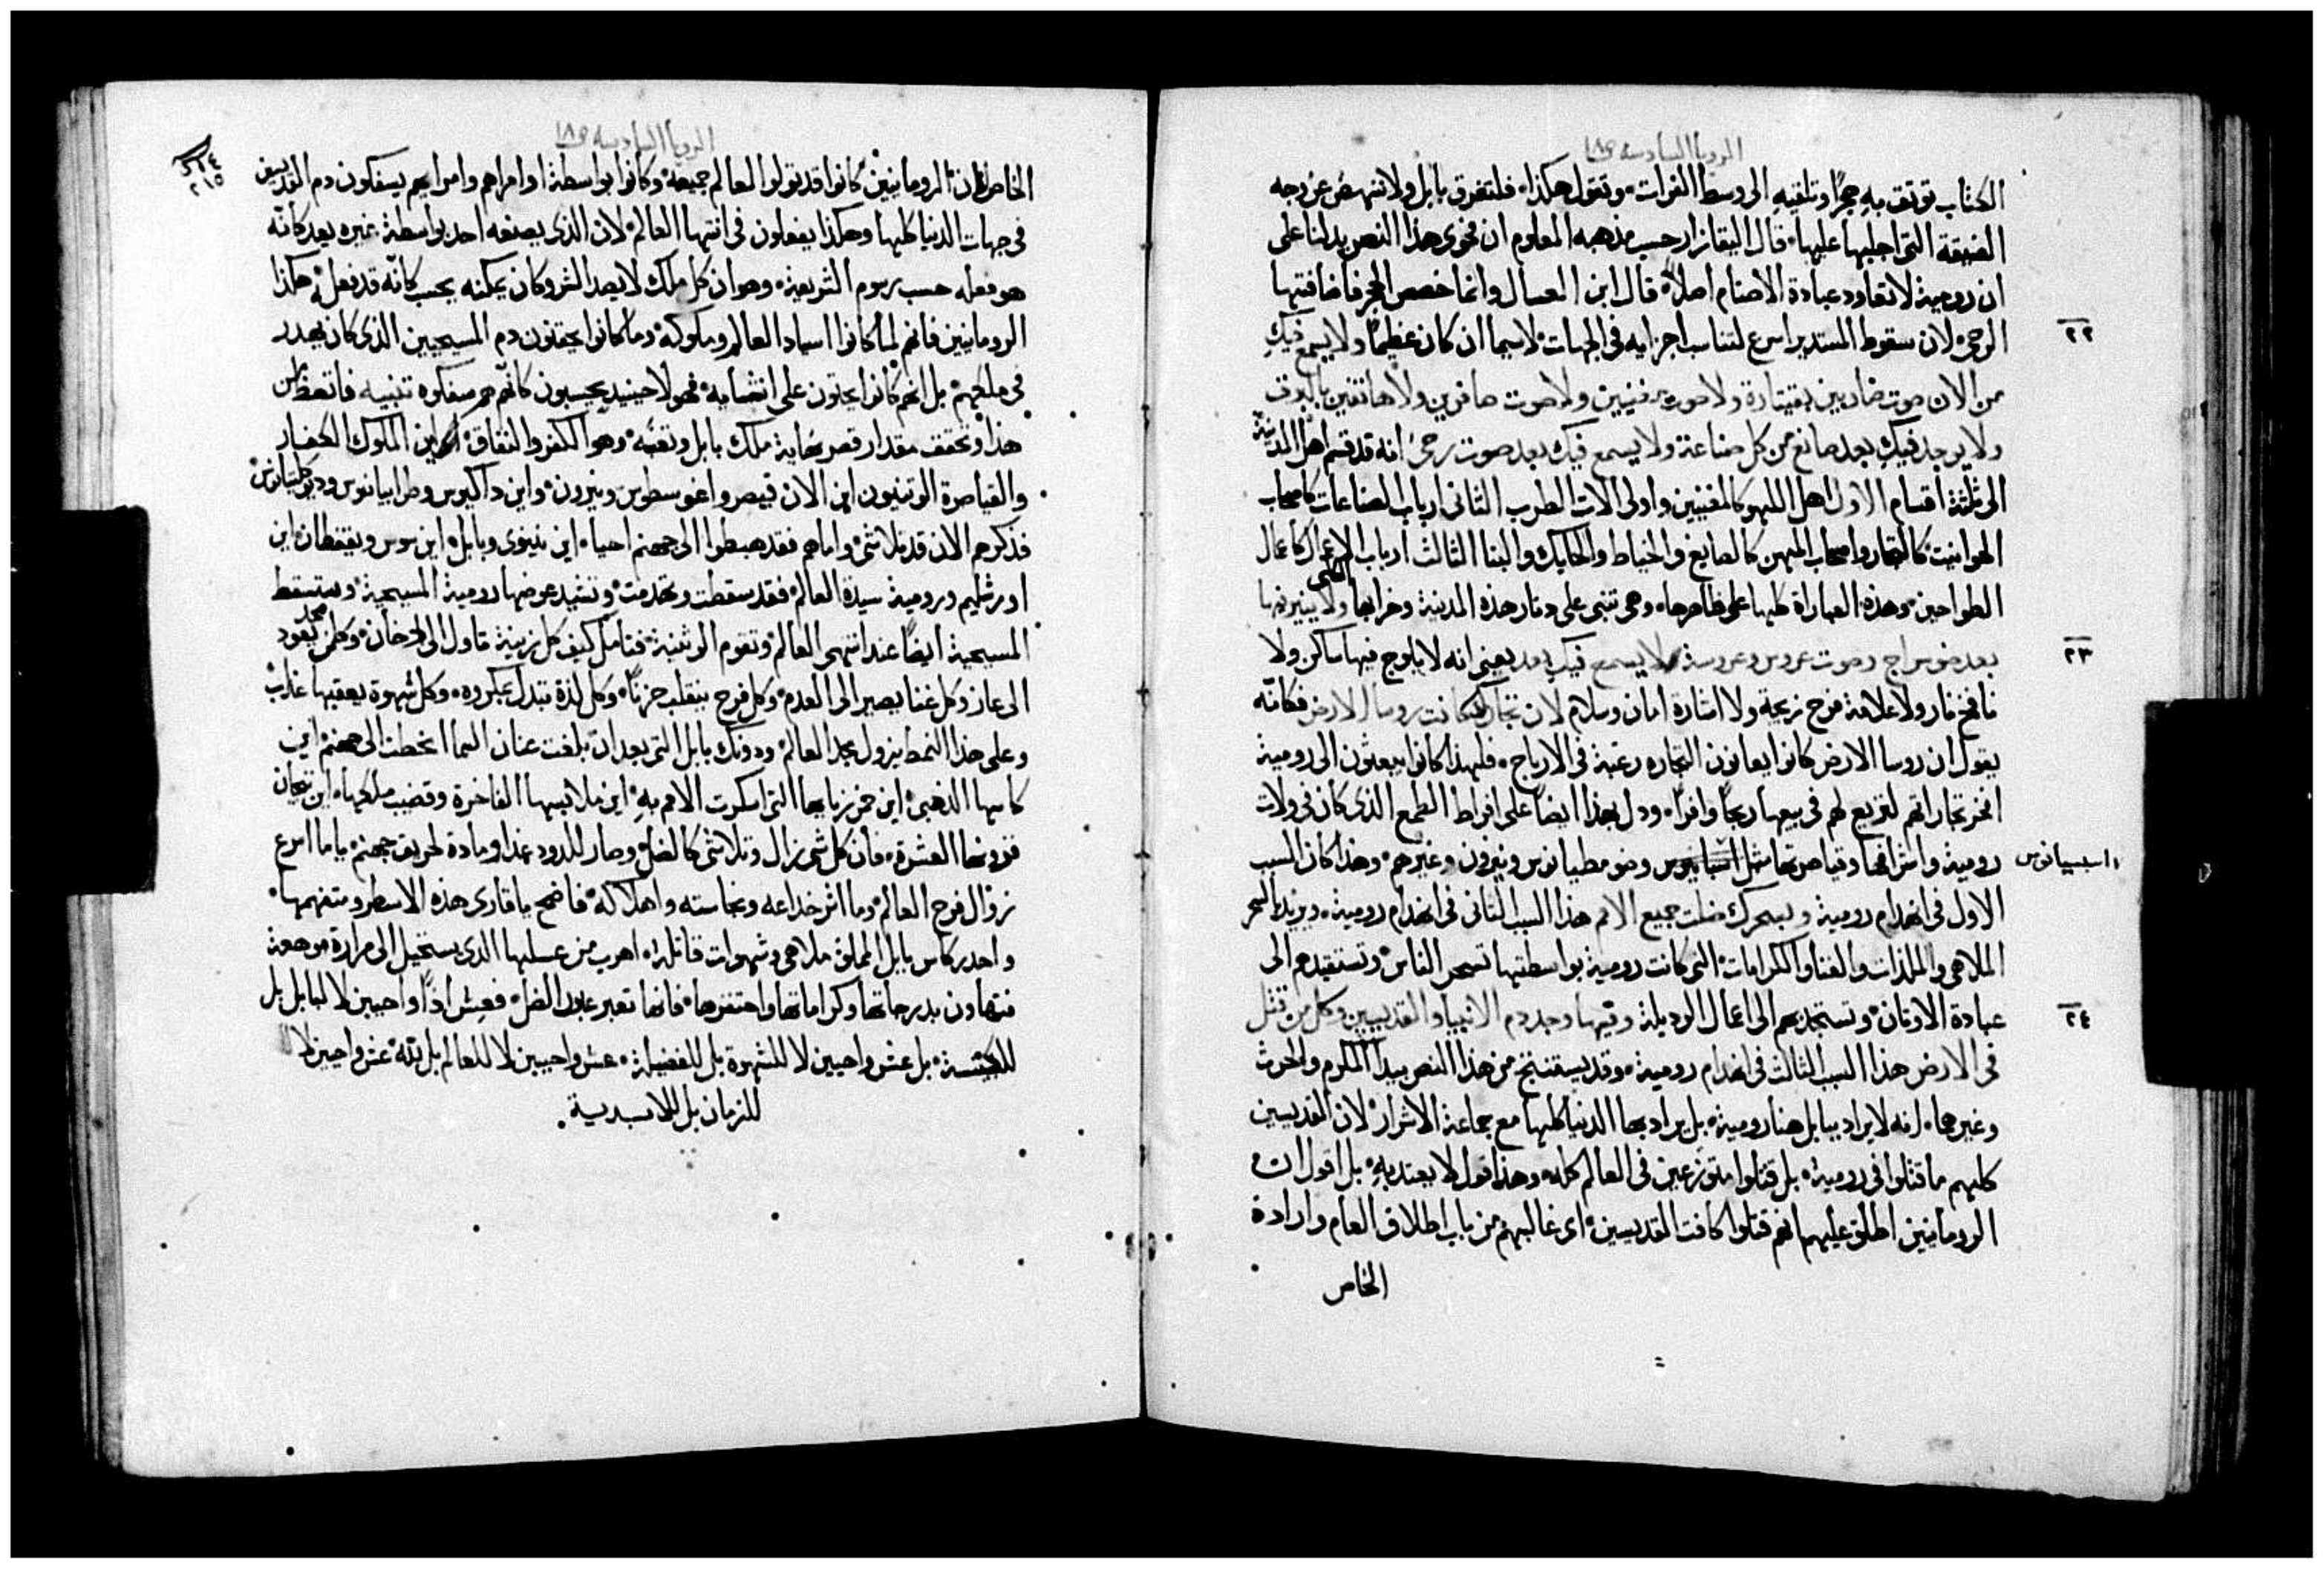 الرويا السادسه ص١٨
الكتاب توثق به حجرًا وتلقيه الى وسط الفرات. وتقول هكذا. فلتغرق بابل ولا تنهض عن وجه
الضيقة التي اجلبها عليها. قال البقازار حسب مذهبه المعلوم ان فحوى هذا النص يدلنا على
ان رومية لا تعاود عبادة الاصنام اصلاً. قال ابن العسال وانما خصص الحجر فاضافتها
٢٢
الرحى. لان سقوط المستدير اسرع لتناسب اجزايه في الجهات. لاسيما ان كان عظيمًا ولا يسمع فيكِ
من الان صوت ضاربين بقيتارة ولا صوت مغنيين ولا صوت صافرين ولا هاتفين بالبوق
ولا يوجد فيكِ بعد صانع من كل صناعة ولا يسمع فيك بعد صوت رحىً انه قد قسم اهل المدينة
الى ثلثة اقسام الاول اهل اللهو كالمغنيين واولى الات الطرب الثاني ارباب الصناعات كاصحاب
الحوانيت كالتجار واصحاب المهن كالصايغ والخياط والحايك والبنا الثالث ارباب الاعمال كاعمال
الطواحين. وهذه العباراة كلها على ظاهرها. وهي تنبى على دثار هذه المدينة وخرابها الكلي ولا ينير فيها
٢٣
بعد ضو سراج وصوت عروس وعروسة لا يسمع فيكِ بعد يعني انه لا يلوج فيها ساكن ولا
نافخ نار ولا علامة فرح زيجة ولا اشارة امان وسلام لان تجاركِ كانت روسا الارض فكانّه
يقول ان روسا الارض كانوا يعانون التجاره رغبة في الارباح. فلهذا كانوا يبعثون الى رومية
افخر تجاراتهم لتربع لهم في بيعها ربحًا وافرًا. ودل بهذا ايضًا على افراط الطمع الذي كان في ولات
رومية واشرافها وقياصرتها مثل وضومطيانوس ونيرون وغيرهم. وهذا كان السبب
واسبسيانوس
الاول في انهدام رومية وبسحرك ضلت جميع الامم هذا السبب الثاني في انهدام رومية. ويريد بالسحر
الملاهي والملذات والغنا والكرامات التي كانت رومية بواسطتها تسحر الناس وتستقيدهم الى
٢٤
عبادة الاوثان وتستجذبهم الى اعمال الرديلة وفيها وجد دم الانبيا والقديسين وكل من قتل
في الارض هذا السبب الثالث في انهدام رومية. وقد يستنتج من هذا النص بيدا المكرم والحرث
وغيرهما. انه لا يراد ببابل هنا رومية. بل يراد بها الدنيا كلها مع جماعة الاشرار لان القديسين
كلهم ما قتلوا في رومية. بل قتلوا متوزعين في العالم كله. وهذا قول لا يعتد بهِ. بل اقول ان
الرومانيين اطلق عليهم انهم قتلوا كافت القديسين اى غالبهم من باب اطلاق العام وارادة
الخاص

الرويا السادسه ص١٨
٢١٤
٢١٥
الخاص لان الرومانيين كانوا قد تولوا العالم جميعه وكانوا بواسطة اوامراهم وامرايهم يسفكون دم القديسين
في جهات الدنيا كلها وهكذا يفعلون في انتهآ العالم لان الذي يصنعه احد بواسطة غيره يعد كانّه
هو فعله حسب رسوم الشريعة. وهو ان كل ملك لا يصد الشر وكان يمكنه يحسب كانّه قد فعله هكذا
الرومانيين فانهم لما كانوا اسياد العالم وملوكه وما كانوا يحقنون دم المسيحيين الذي كان يهدر
في ملكهم بل انهم كانوا يحثون على انتشابه فهولا حينيد يحسبون كانّهم هم سفكوه تنبيه فاتعظ من
هذا وتحقق مقدار قصر نهاية ملك بابل ونقمته وهو الكفر والنفاق اين الملوك الكفار
والقياصرة الوثنيون اين الان قيصر واغوسطوس ونيرون. واين داكيوس وطرابيانوس وديوكليتيانوس
فذكرهم الان قد تلاشى. واماهم فقد هبطوا الى جهنم احيا. اين نينوى وبابل. اين سوس وبقتفطان اين
اورشليم ورومية سيدة العالم فقد سقطت وتهدمت وتشيد عوضها رومية المسيحية. وستسقط
المسيحية ايضًا عند انتهى العالم وتقوم الوثنية. فتامل كيف كل زينة تاول الى الدخان. وكل مجد يعود
الى عار وكل غنا يصير الى العدم. وكل فرح ينقلب حزنًا. وكل لذة تتبدل بمكروه. وكل شهوة يعقبها عذاب
وعلى هذا النمط يزول مجد العالم. ودونك بابل التي بعد ان بلغت عنان السما انحطت الى جهنم اين
كاسها الذهبي. اين خمر زناها التي اسكرت الامم بهِ. اين ملابسها الفاخرة وقضيب ملكها. اين تيجان
قرونها العشرة. فان كل شى زال وتلاشى كالظل وصار للدود غداً ومادة لحريق جهنم. ياما اسرع
زوال فرح العالم. وما اشر خداعه ونجاسته واهلاكه. فاضحِ يا قارى هذه الاسطر ومتفهمها.
واحدر كاس بابل المملوة ملاهي وشهوات قاتلة. اهرب من عسلها الذي يستحيل الى مرارة موجعة
فتهاون بدرجاتها وكراماتها واحتقرها. فانها تعبر عبور الظل. فعش اذًا واحيين لا لبابل بل
للكنيسة. بل عش واحيين لا للشهوة بل للفضيلة. عش واحيين لا للعالم بل للّه. عش واحيين لا
للزمان بل للابدية.